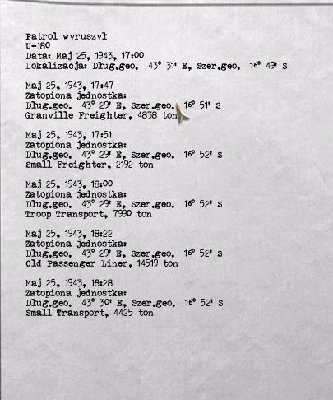 Patrol wyruszył
U-180
Data: Maj 25, 1943, 17:00
Lokalizacja: Dług.geo. 43° 31' E, Szer.geo. 16° 49' S
Maj 25, 1943, 17:47
Zatopiona jednostka:
Dług.geo. 43° 29' E, Szer.geo. 16° 51' S
Granville Freighter, 4898 ton
Maj 25, 1943, 17:51
Zatopiona jednostka:
Dług.geo. 43° 29' E, Szer.geo. 16° 52' S
Small Freighter, 2192 ton
Maj 25, 1943, 18:00
Zatopiona jednostka:
Dług.geo. 43° 29' E, Szer.geo. 16° 52' S
Troop Transport, 7990 ton
Maj 25, 1943, 18:22
Zatopiona jednostka:
Dług.geo. 43° 29' E, Szer.geo. 16° 52' S
Old Passenger Liner, 14519 ton
Maj 25, 1943, 18:28
Zatopiona jednostka:
Dług.geo. 43° 30' E, Szer.geo. 16° 52' S
Small Transport, 4425 ton